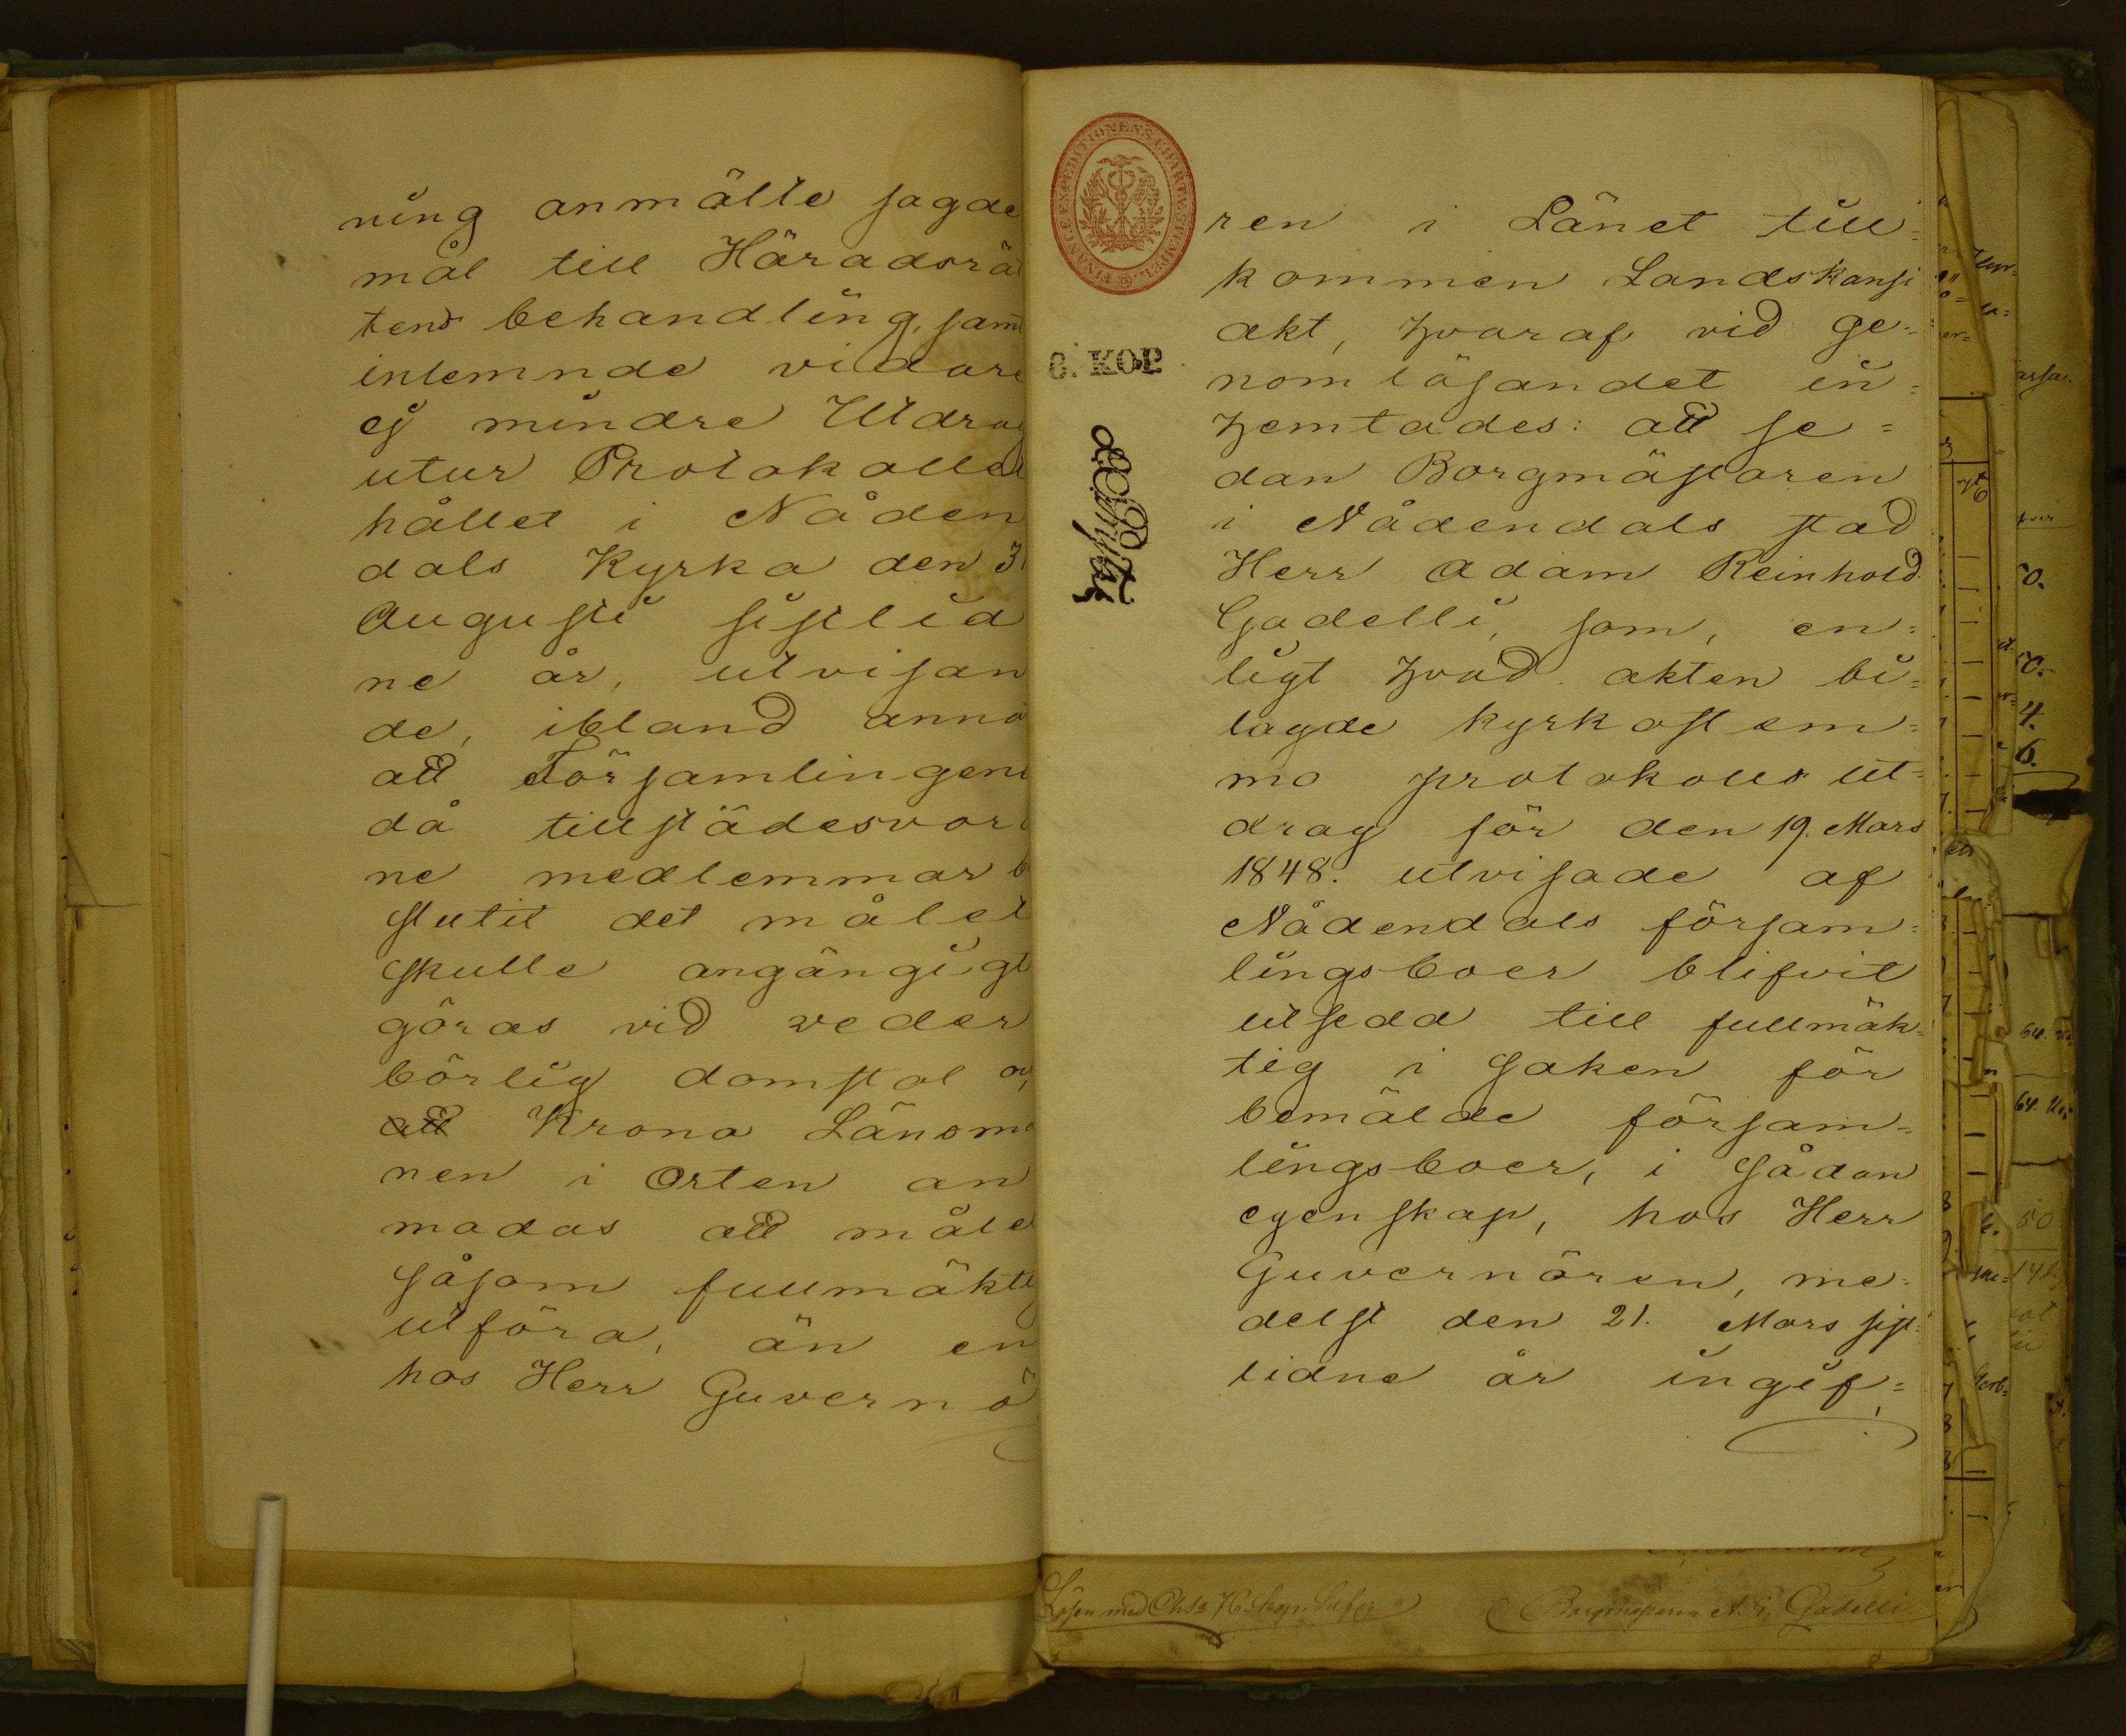 ning anmälte sagde
mål till Häradsrät
tens behandling, samt
inlemnde vidare
ej mindre Utdrag
utur Protokollet
hållet i Nåden
dals Kyrka den 31
Augusti sistlid
ne år, utvisan
de, ibland anna
att Församlingens
då tillstädesvara
ne medlemmar be
slutit det målet
skulle angängigt
göras vid veder
börlig domstol
att Krono Länsma
nen i Orten an
modas att målet
såsom fullmäktig
utföra, än en
hos Herr Guvernö
FINANCE EXPEDITIONENS CHARTÆ STEMPEL
6. KOP
ren i Länet till=
kommen Landskansli
akt, hvaraf vid ge=
nomläsandet in=
hemtades: att se=
dan Borgmästaren
i Nådendals stad
Herr Adam Reinhold
Gadelli, som, en=
ligt hvad akten bi=
lagde kyrkostem=
mo protokolls ut=
drag för den 19. Mars
1848. utvisade af
Nådendals försam=
lingsboer blifvit
utsedd till fullmäk=
tig i saken för
bemälde försam=
lingsboer, i sådan
egenskap, hos Herr
Guvernören, me=
delst den 21. Mars sist=
lidne år ingif=
Lösen med 76. kop. Silfver
Borgmästaren A. R. Gadelli